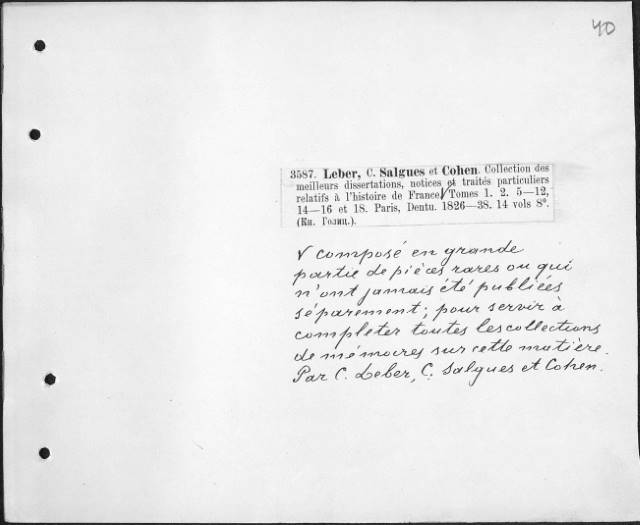 40
3587. Leber, C. Salgues et Cohen. Collection des
meilleurs dissertations, notices et traités particuliers
relatifs à l'histoire de France √ Tomes 1. 2. 5—12,
14—16 et 18. Paris, Dentu. 1826—38. 14 vols 8°.
(Кн. Голиц.).
√ composé en grande
partie de pièces rares ou qui
n'ont jamais été publiées
séparement; pour servir à
completer toutes les collections
de mémoires sur cette matière.
Par C. Leber, C. Salgues et Cohen.